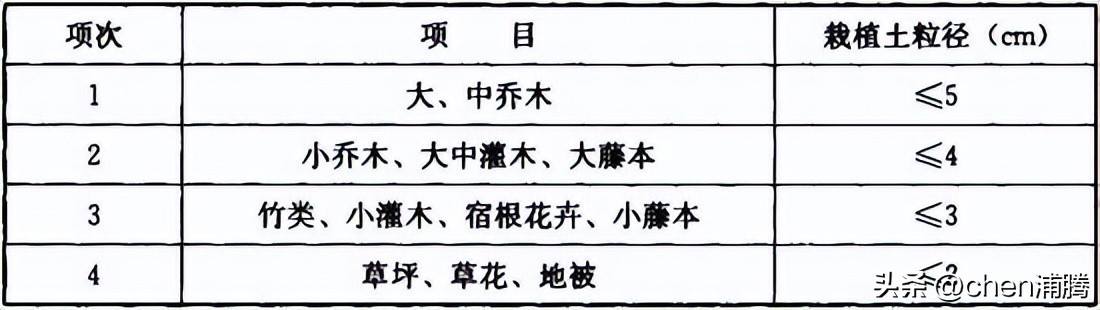 项次 项 目 栽植土粒径（cm）
1 大、中乔木 ≤5
2 小乔木、大中灌木、大藤本 ≤4
3 竹类、小灌木、宿根花卉、小藤本 ≤3
4 草坪、草花、地被
头条@chen浦腾